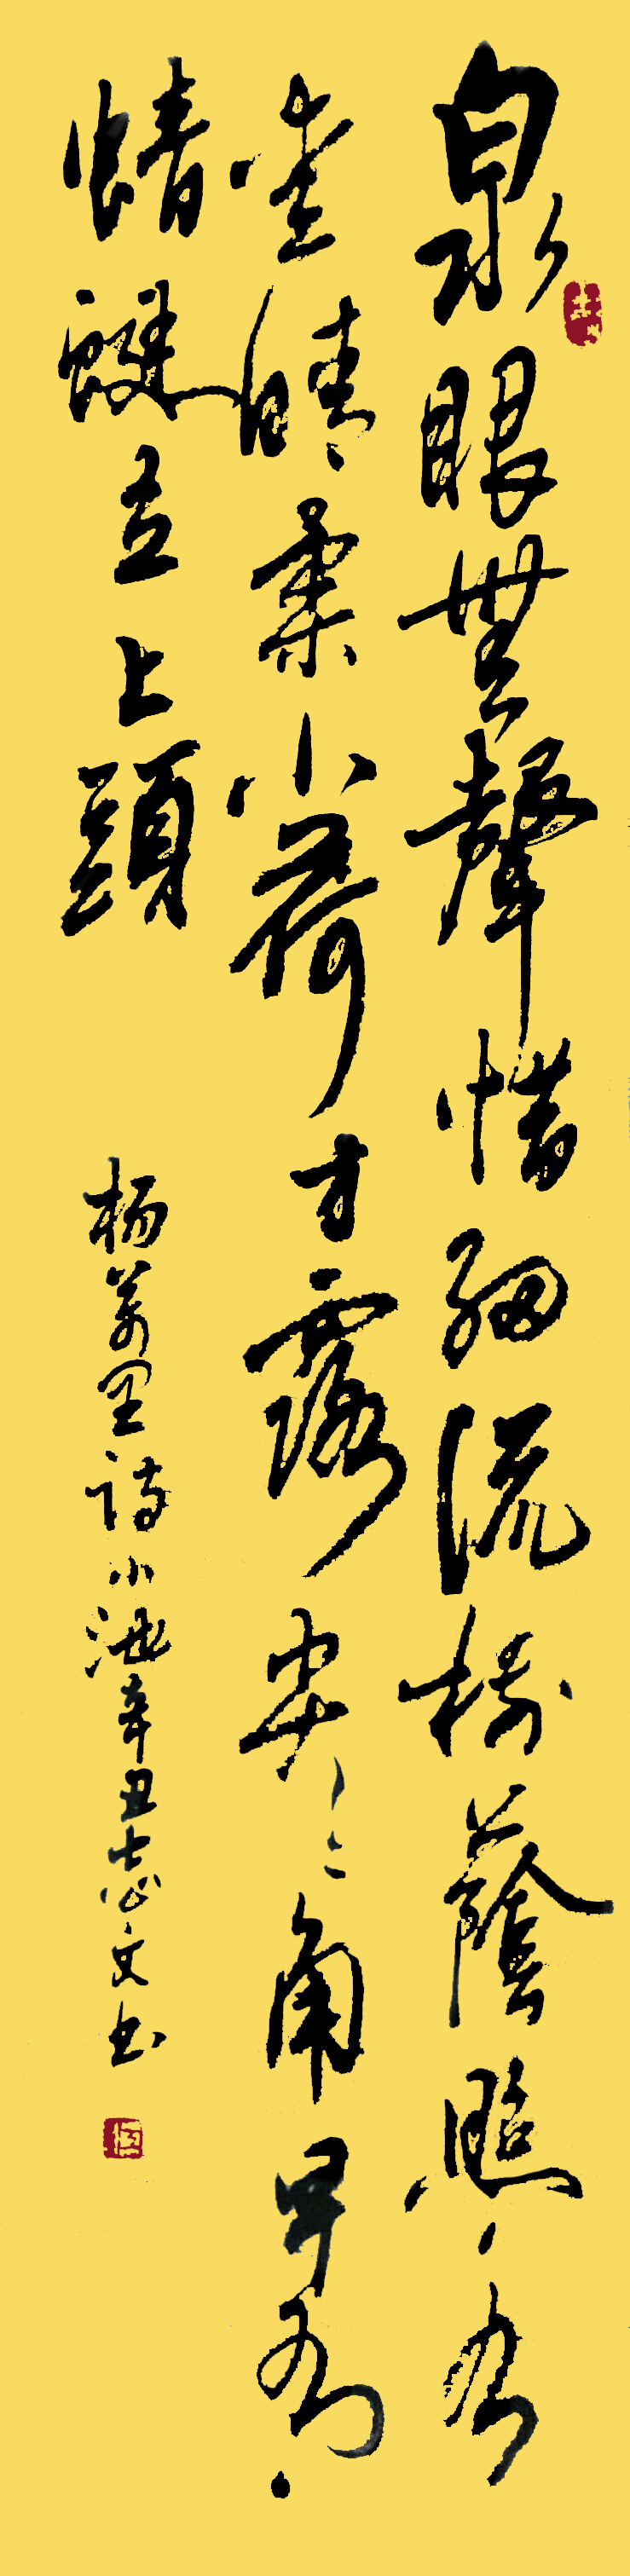 泉眼無聲惜細流樹蔭照水
愛晴柔小荷才露尖々角早有
蜻蜓立上頭
杨萬里詩小池辛丑志文书